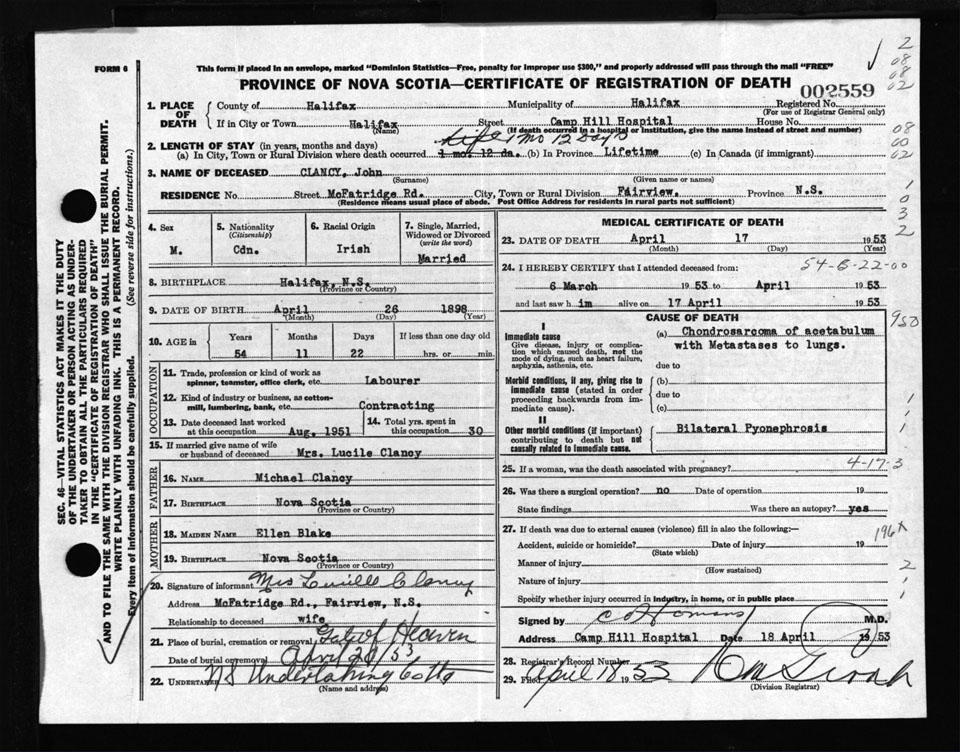 FORM 6
This form if placed in an envelope, marked "Dominion Statistics—Free, penalty for improper use $300," and properly addressed will pass through the mail "FREE"
PROVINCE OF NOVA SCOTIA—CERTIFICATE OF REGISTRATION OF DEATH
002559
1. PLACE OF DEATH
County of Halifax Municipality of Halifax Registered No.
(For use of Registrar General only)
If in City or Town Halifax Street Camp Hill Hospital House No.
(Name) (If death occurred in a hospital or institution, give the name instead of street and number)
2. LENGTH OF STAY (in years, months and days) life 1 Mo 12 Days
(a) In City, Town or Rural Division where death occurred 1 mo. 12 da. (b) In Province Lifetime (c) In Canada (if immigrant)
3. NAME OF DECEASED CLANCY, John
(Surname) (Given name or names)
RESIDENCE No. Street McFatridge Rd. City, Town or Rural Division Fairview, Province N.S.
(Residence means usual place of abode. Post Office Address for residents in rural parts not sufficient)
4. Sex
M.
5. Nationality
(Citizenship)
Cdn.
6. Racial Origin
Irish
7. Single, Married, Widowed or Divorced
(write the word)
Married
8. BIRTHPLACE Halifax, N.S.
(Province or Country)
9. DATE OF BIRTH April 26 1898
(Month) (Day) (Year)
10. AGE in
Years Months Days If less than one day old
54 11 22 hrs. or min.
OCCUPATION
11. Trade, profession or kind of work as
spinner, teamster, office clerk, etc. Labourer
12. Kind of industry or business, as cotton-
mill, lumbering, bank, etc. Contracting
13. Date deceased last worked
at this occupation Aug. 1951
14. Total yrs. spent
in this occupation 30
15. If married give name of wife
or husband of deceased Mrs. Lucile Clancy
FATHER
16. NAME Michael Clancy
17. BIRTHPLACE Nova Scotia
(Province or Country)
MOTHER
18. MAIDEN NAME Ellen Blake
19. BIRTHPLACE Nova Scotia
(Province or Country)
20. Signature of informant Mrs Lucille Clancy
Address McFatridge Rd., Fairview, N.S.
Relationship to deceased wife
21. Place of burial, cremation or removal Gate of Heaven
Date of burial or removal April 20/53
22. UNDERTAKER NS Undertaking
(Name and address)
MEDICAL CERTIFICATE OF DEATH
23. DATE OF DEATH April 17 1953
(Month) (Day) (Year)
24. I HEREBY CERTIFY that I attended deceased from:
54-B-22-00
6 March 1953 to April 1953
and last saw him alive on 17 April 1953
CAUSE OF DEATH
I
Immediate cause
Give disease, injury or complica-
tion which caused death, not the
mode of dying, such as heart failure,
asphyxia, asthenia, etc.
(a) Chondrosarcoma of acetabulum
with Metastases to lungs.
due to
Morbid conditions, if any, giving rise to
immediate cause (stated in order
proceeding backwards from im-
mediate cause).
(b)
due to
(c)
II
Other morbid conditions (if important)
contributing to death but not
causally related to immediate cause.
Bilateral Pyonephrosis
25. If a woman, was the death associated with pregnancy?
4-17-3
26. Was there a surgical operation? no Date of operation 19
State findings Was there an autopsy? yes
27. If death was due to external causes (violence) fill in also the following:—
Accident, suicide or homicide? Date of injury 19
(State which)
Manner of injury
(How sustained)
Nature of injury
Specify whether injury occurred in industry, in home, or in public place
Signed by M.D.
Address Camp Hill Hospital Date 18 April 1953
28. Registrar's Record Number
29. Filed April 18 1953
(Division Registrar)
SEC. 46—VITAL STATISTICS ACT MAKES IT THE DUTY
OF THE UNDERTAKER OR PERSON ACTING AS UNDER-
TAKER TO OBTAIN ALL THE PARTICULARS REQUIRED
IN THE "CERTIFICATE OF REGISTRATION OF DEATH"
AND TO FILE THE SAME WITH THE DIVISION REGISTRAR WHO SHALL ISSUE THE BURIAL PERMIT.
WRITE PLAINLY WITH UNFADING INK. THIS IS A PERMANENT RECORD.
Every item of information should be carefully supplied. (See reverse side for instructions.)
2
08
08
02
08
60
02
1
0
3
2
950
1
1
1
196x
2
1
1